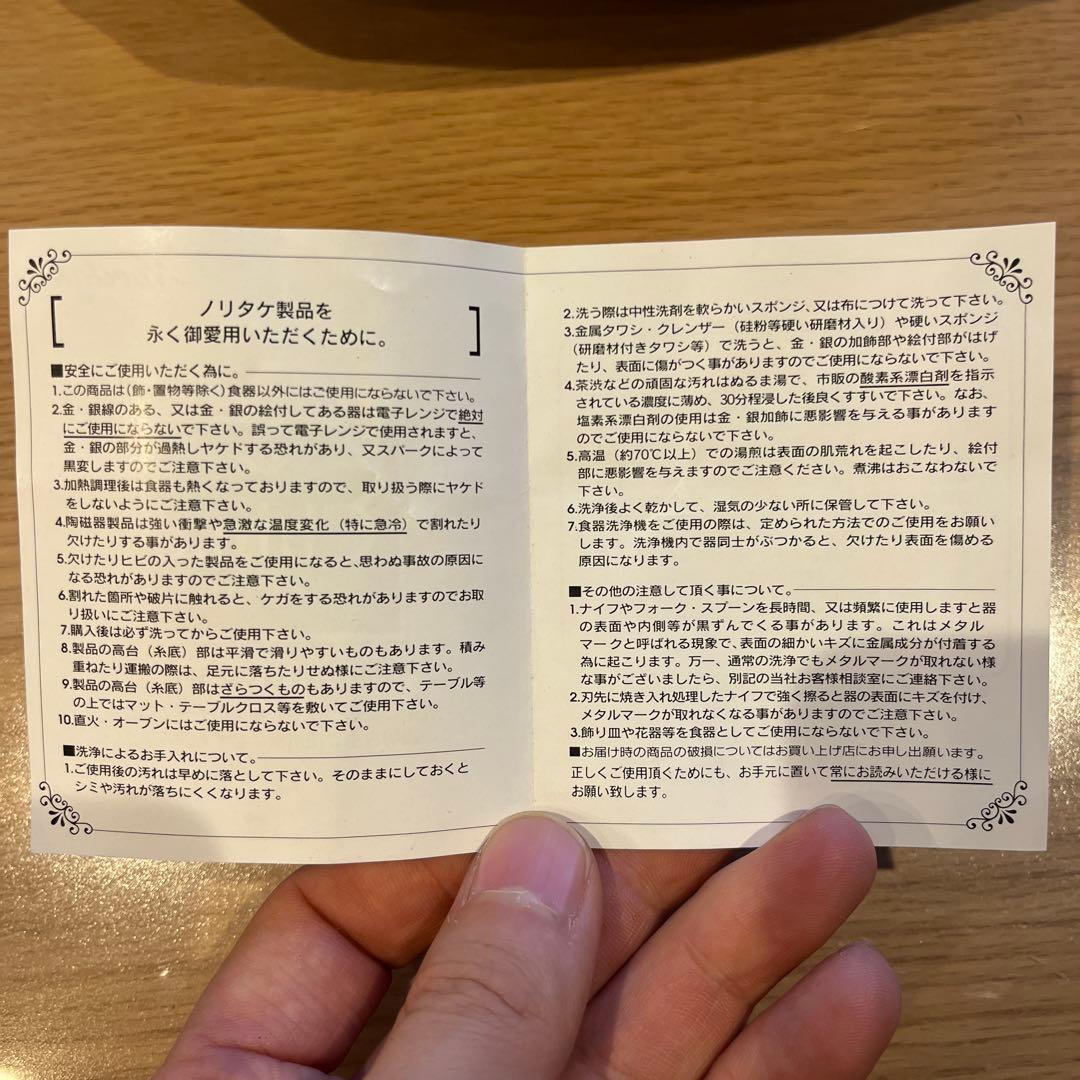 ノリタケ製品を
永く御愛用いただくために。
■安全にご使用いただく為に。
1.この商品は(飾・置物等除く)食器以外にはご使用にならないで下さい。
2.金・銀線のある、又は金・銀の絵付してある器は電子レンジで絶対
にご使用にならないで下さい。誤って電子レンジで使用されますと、
金・銀の部分が過熱しヤケドする恐れがあり、又スパークによって
黒変しますのでご注意下さい。
3.加熱調理後は食器も熱くなっておりますので、取り扱う際にヤケド
をしないようにご注意下さい。
4.陶磁器製品は強い衝撃や急激な温度変化（特に急冷）で割れたり
欠けたりする事があります。
5.欠けたりヒビの入った製品をご使用になると、思わぬ事故の原因に
なる恐れがありますのでご注意下さい。
6.割れた箇所や破片に触れると、ケガをする恐れがありますのでお取
り扱いにご注意下さい。
7.購入後は必ず洗ってからご使用下さい。
8.製品の高台（糸底）部は平滑で滑りやすいものもあります。積み
重ねたり運搬の際は、足元に落ちたりせぬ様にご注意下さい。
9.製品の高台（糸底）部はざらつくものもありますので、テーブル等
の上ではマット・テーブルクロス等を敷いてご使用下さい。
10.直火・オーブンにはご使用にならないで下さい。
■洗浄によるお手入れについて。
1.ご使用後の汚れは早めに落として下さい。そのままにしておくと
シミや汚れが落ちにくくなります。
2.洗う際は中性洗剤を軟らかいスポンジ、又は布につけて洗って下さい。
3.金属タワシ・クレンザー（硅粉等硬い研磨材入り）や硬いスポンジ
（研磨材付きタワシ等）で洗うと、金・銀の加飾部や絵付部がはげ
たり、表面に傷がつく事がありますのでご使用にならないで下さい。
4.茶渋などの頑固な汚れはぬるま湯で、市販の酸素系漂白剤を指示
されている濃度に薄め、30分程浸した後良くすすいで下さい。なお、
塩素系漂白剤の使用は金・銀加飾に悪影響を与える事があります
のでご使用にならないで下さい。
5.高温（約70℃以上）での湯煎は表面の肌荒れを起こしたり、絵付
部に悪影響を与えますのでご注意ください。煮沸はおこなわないで
下さい。
6.洗浄後よく乾かして、湿気の少ない所に保管して下さい。
7.食器洗浄機をご使用の際は、定められた方法でのご使用をお願い
します。洗浄機内で器同士がぶつかると、欠けたり表面を傷める
原因になります。
■その他の注意して頂く事について。
1.ナイフやフォーク・スプーンを長時間、又は頻繁に使用しますと器
の表面や内側等が黒ずんでくる事があります。これはメタル
マークと呼ばれる現象で、表面の細かいキズに金属成分が付着する
為に起こります。万一、通常の洗浄でもメタルマークが取れない様
な事がございましたら、別記の当社お客様相談室にご連絡下さい。
2.刃先に焼き入れ処理したナイフで強く擦ると器の表面にキズを付け、
メタルマークが取れなくなる事がありますのでご注意下さい。
3.飾り皿や花器等を食器としてご使用にならないで下さい。
■お届け時の商品の破損についてはお買い上げ店にお申し出願います。
正しくご使用頂くためにも、お手元に置いて常にお読みいただける様に
お願い致します。